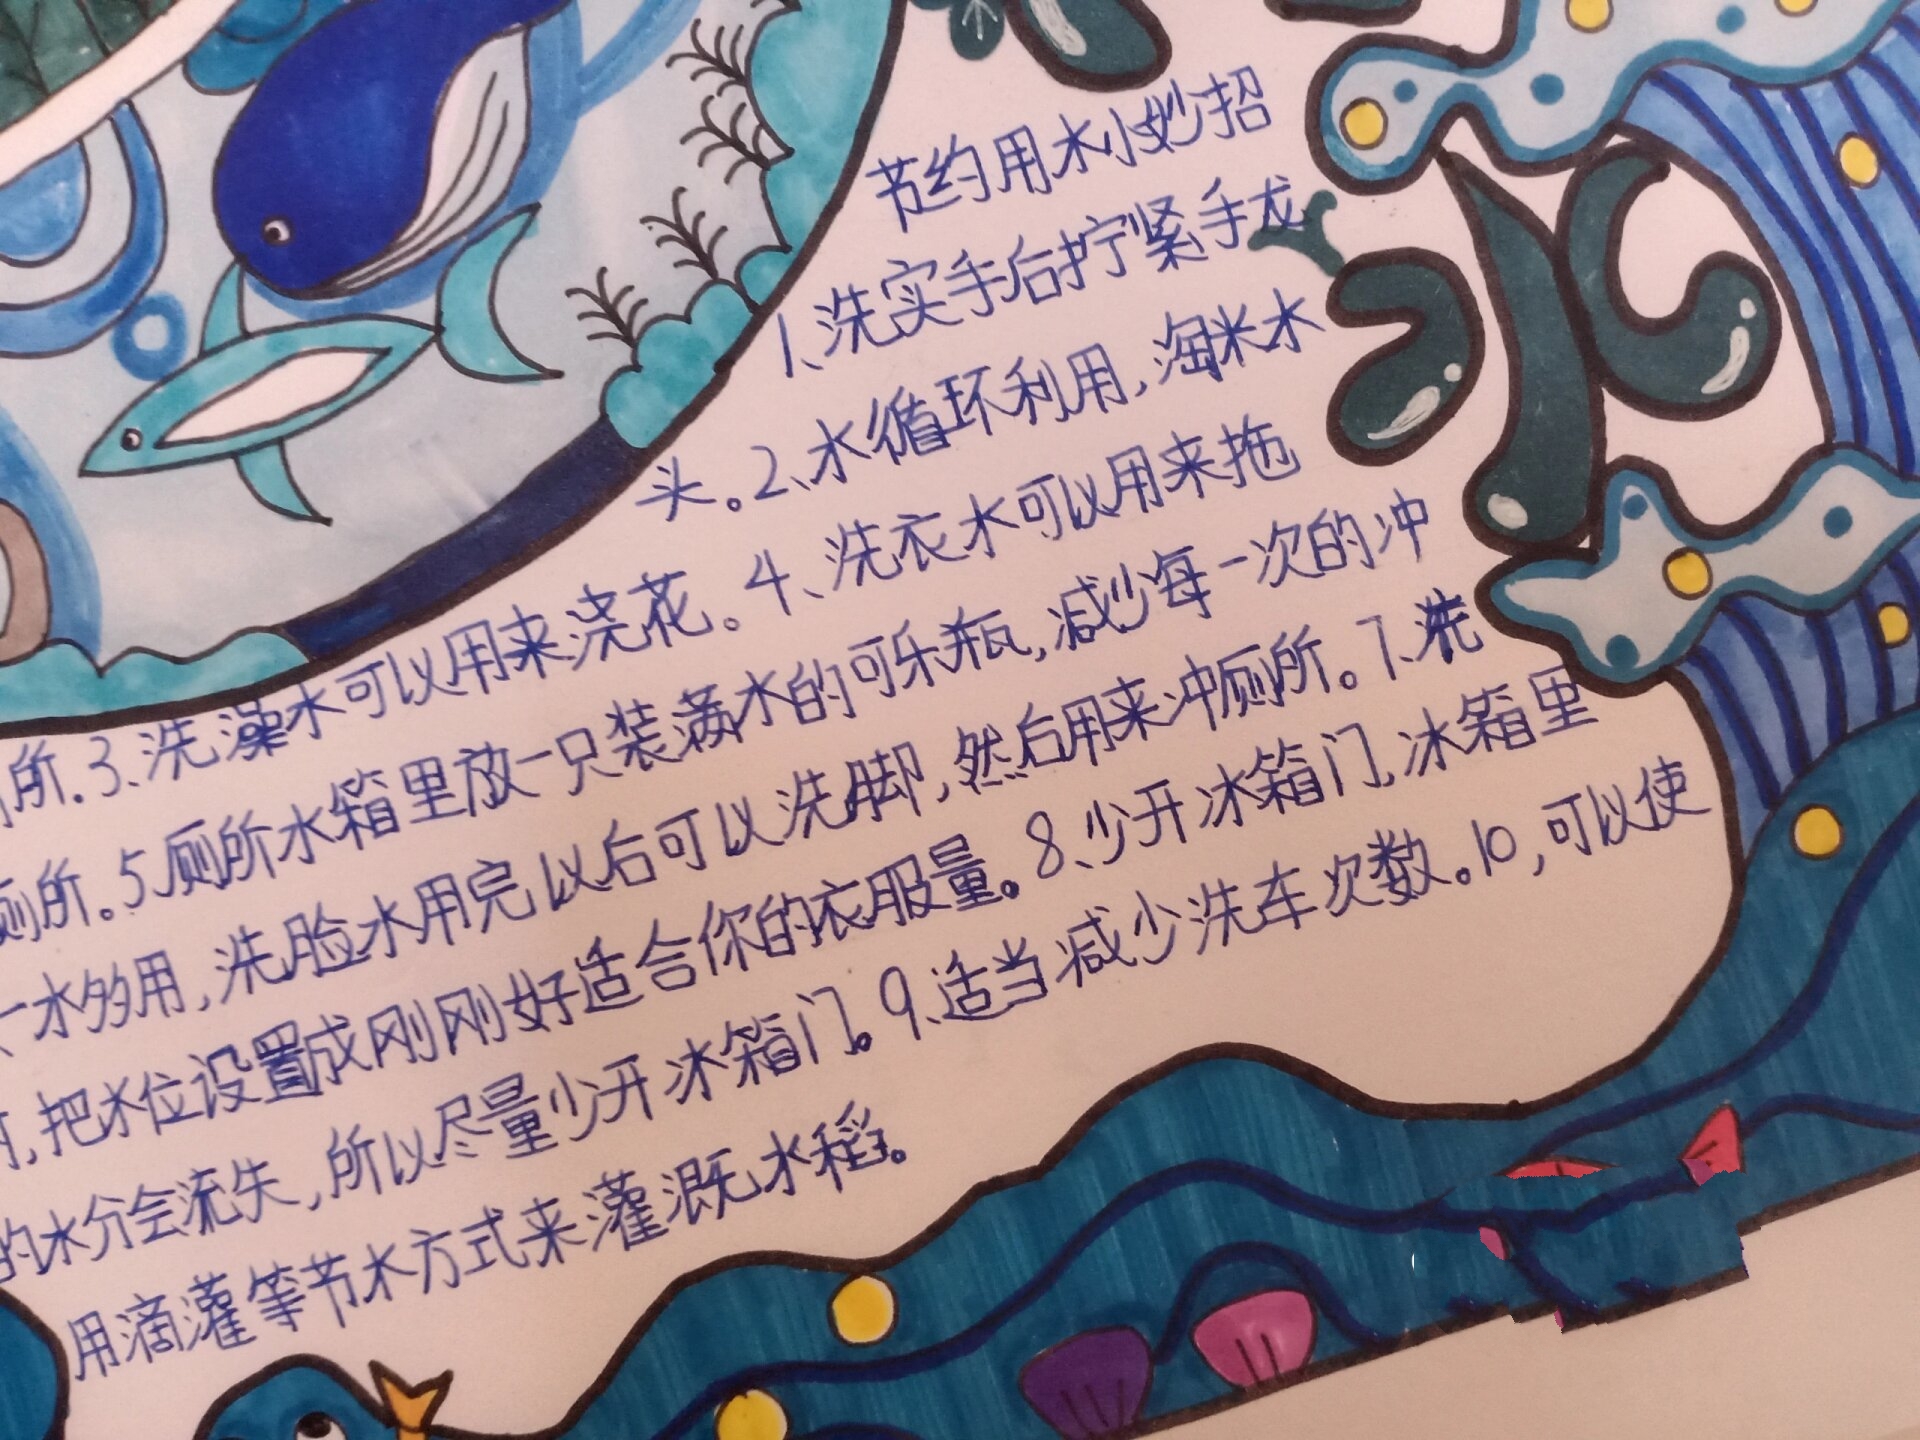 节约用水小妙招
1、洗实手后拧紧手龙
头。2、水循环利用,淘米水
所.3、洗澡水可以用来浇花。4、洗衣水可以用来拖
厕所。5厕所水箱里放一只装满水的可乐瓶,减少每一次的冲
一水多用,洗脸水用完以后可以洗脚,然后用来冲厕所。7、洗
,把水位设置成刚刚好适合你的衣服量。8、少开冰箱门,冰箱里
的水分会流失,所以尽量少开冰箱门。9、适当减少洗车次数。10,可以使
用滴灌等节水方式来灌溉水稻。
水